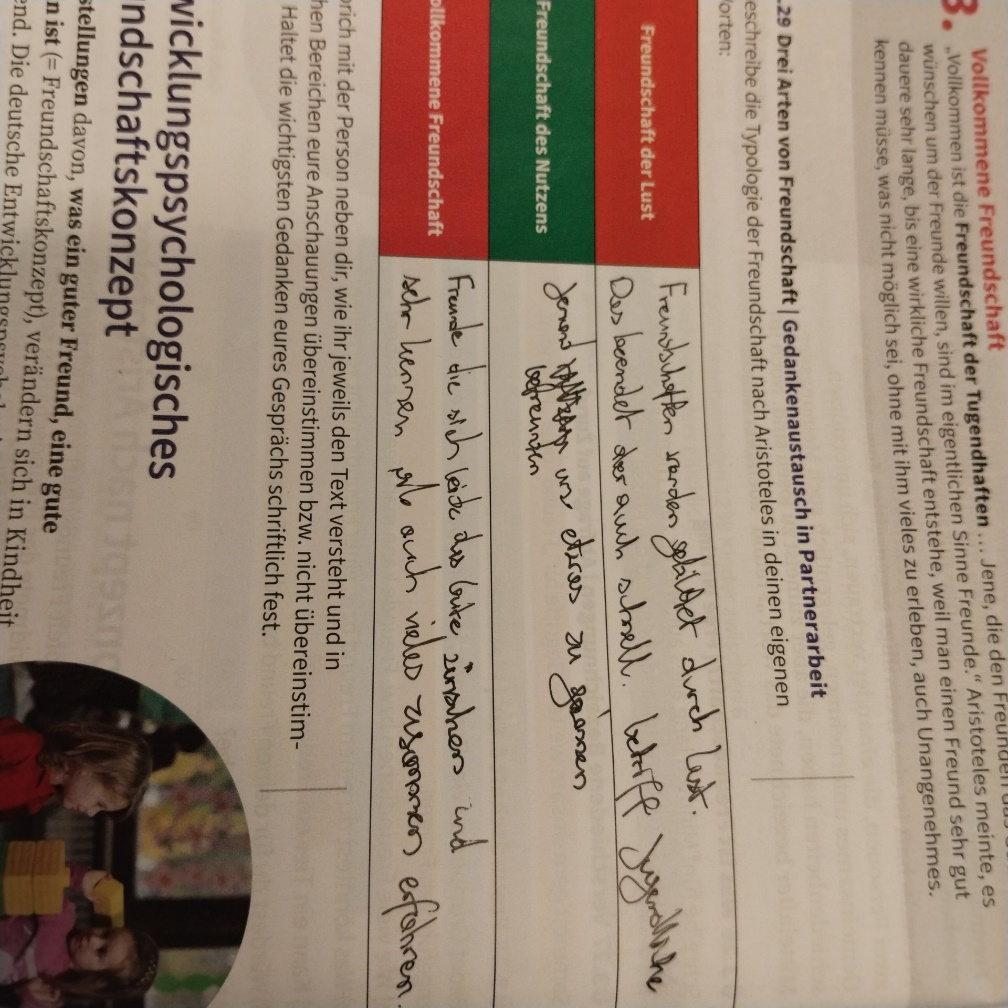 3. Vollkommene Freundschaft
„Vollkommen ist die Freundschaft der Tugendhaften … Jene, die den Freunden das
wünschen um der Freunde willen, sind im eigentlichen Sinne Freunde.“ Aristoteles meinte, es
dauere sehr lange, bis eine wirkliche Freundschaft entstehe, weil man einen Freund sehr gut
kennen müsse, was nicht möglich sei, ohne mit ihm vieles zu erleben, auch Unangenehmes.
.29 Drei Arten von Freundschaft | Gedankenaustausch in Partnerarbeit
eschreibe die Typologie der Freundschaft nach Aristoteles in deinen eigenen
orten:
Freundschaft der Lust
Freundschaften werden gebildet durch Lust.
Das beendet der auch schnell. betriff Jugendliche
Freundschaft des Nutzens
Jemand um etwas zu
befreunden
ollkommene Freundschaft
Freunde die sich beide das Gute wünschen und
sehr kennen auch vieles zusammen erfahren.
prich mit der Person neben dir, wie ihr jeweils den Text versteht und in
hen Bereichen eure Anschauungen übereinstimmen bzw. nicht übereinstim-
Haltet die wichtigsten Gedanken eures Gesprächs schriftlich fest.
wicklungspsychologisches
ndschaftskonzept
stellungen davon, was ein guter Freund, eine gute
n ist (= Freundschaftskonzept), verändern sich in Kindheit
end. Die deutsche